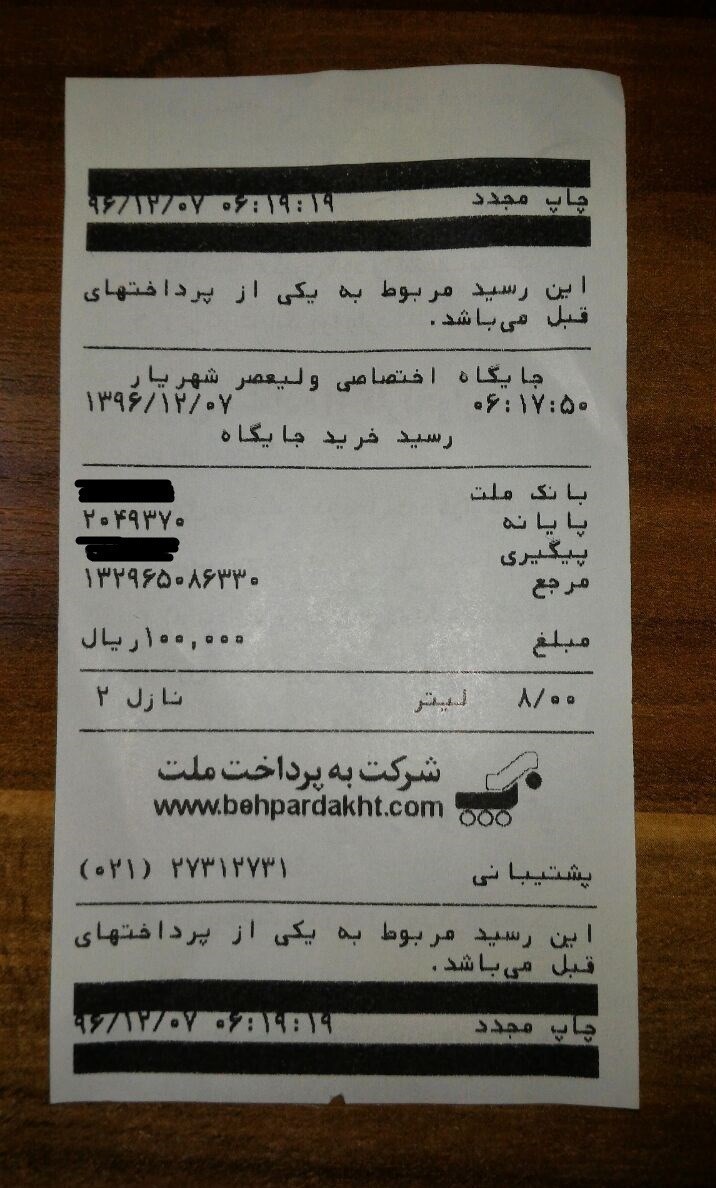 چاپ مجدد ۹۶/۱۲/۰۷ ۰۶:۱۹:۱۹
این رسید مربوط به یکی از پرداختهای
قبل می‌باشد.
جایگاه اختصاصی ولیعصر شهریار
۰۶:۱۷:۵۰ ۱۳۹۶/۱۲/۰۷
رسید خرید جایگاه
بانک ملت
پایانه ۲۰۴۹۳۷۰
پیگیری
مرجع ۱۳۲۹۶۵۰۸۶۳۳۰
مبلغ ۱۰۰,۰۰۰ریال
۸/۰۰ لیتر نازل ۲
شرکت به پرداخت ملت
www.behpardakht.com
پشتیبانی ۲۷۳۱۲۷۳۱ (۰۲۱)
این رسید مربوط به یکی از پرداختهای
قبل می‌باشد.
چاپ مجدد ۹۶/۱۲/۰۷ ۰۶:۱۹:۱۹